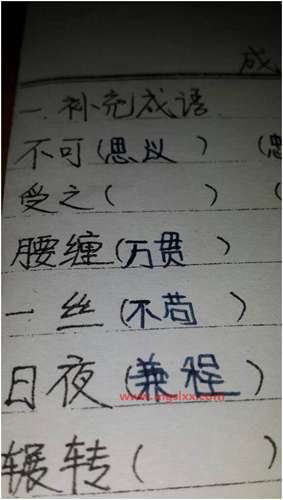 成
一.补充成语
不可(思议 ) (
受之( ) (
腰缠(万贯 )
一丝(不苟 )
日夜(兼程 )
辗转( )